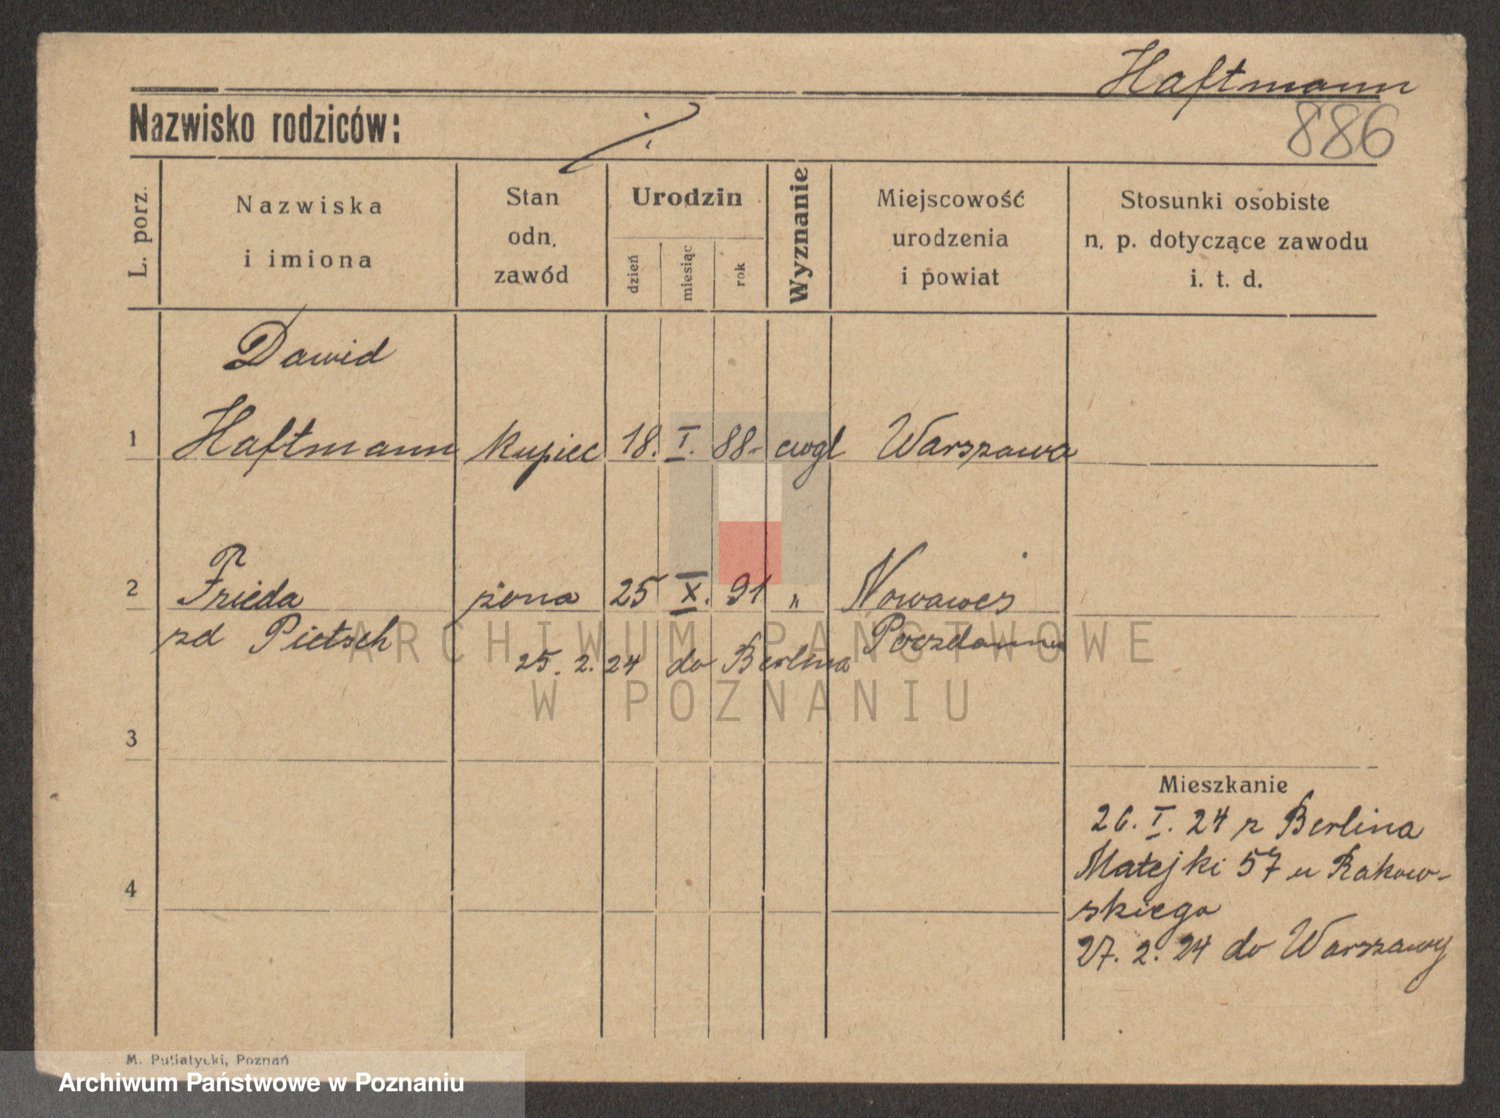 Haftmann
886
Nazwisko rodziców:
L. porz.
Nazwiska
i imiona
Stan
odn.
zawód
Urodzin
dzień
miesiąc
rok
Wyznanie
Miejscowość
urodzenia
i powiat
Stosunki osobiste
n. p. dotyczące zawodu
i. t. d.
Dawid
1 Haftmann kupiec 18. I. 88. ewgl Warszawa
2 Frieda żona 25 X. 91 " Nowawes
zd Pietsch Poczdamm
25. 2. 24 do Berlina
ARCHIWUM PAŃSTWOWE
W POZNANIU
3
Mieszkanie
26. I. 24 z Berlina
Matejki 57 u Rakow-
skiego
4
27. 2. 24 do Warszawy
M. Putiatycki, Poznań
Archiwum Państwowe w Poznaniu